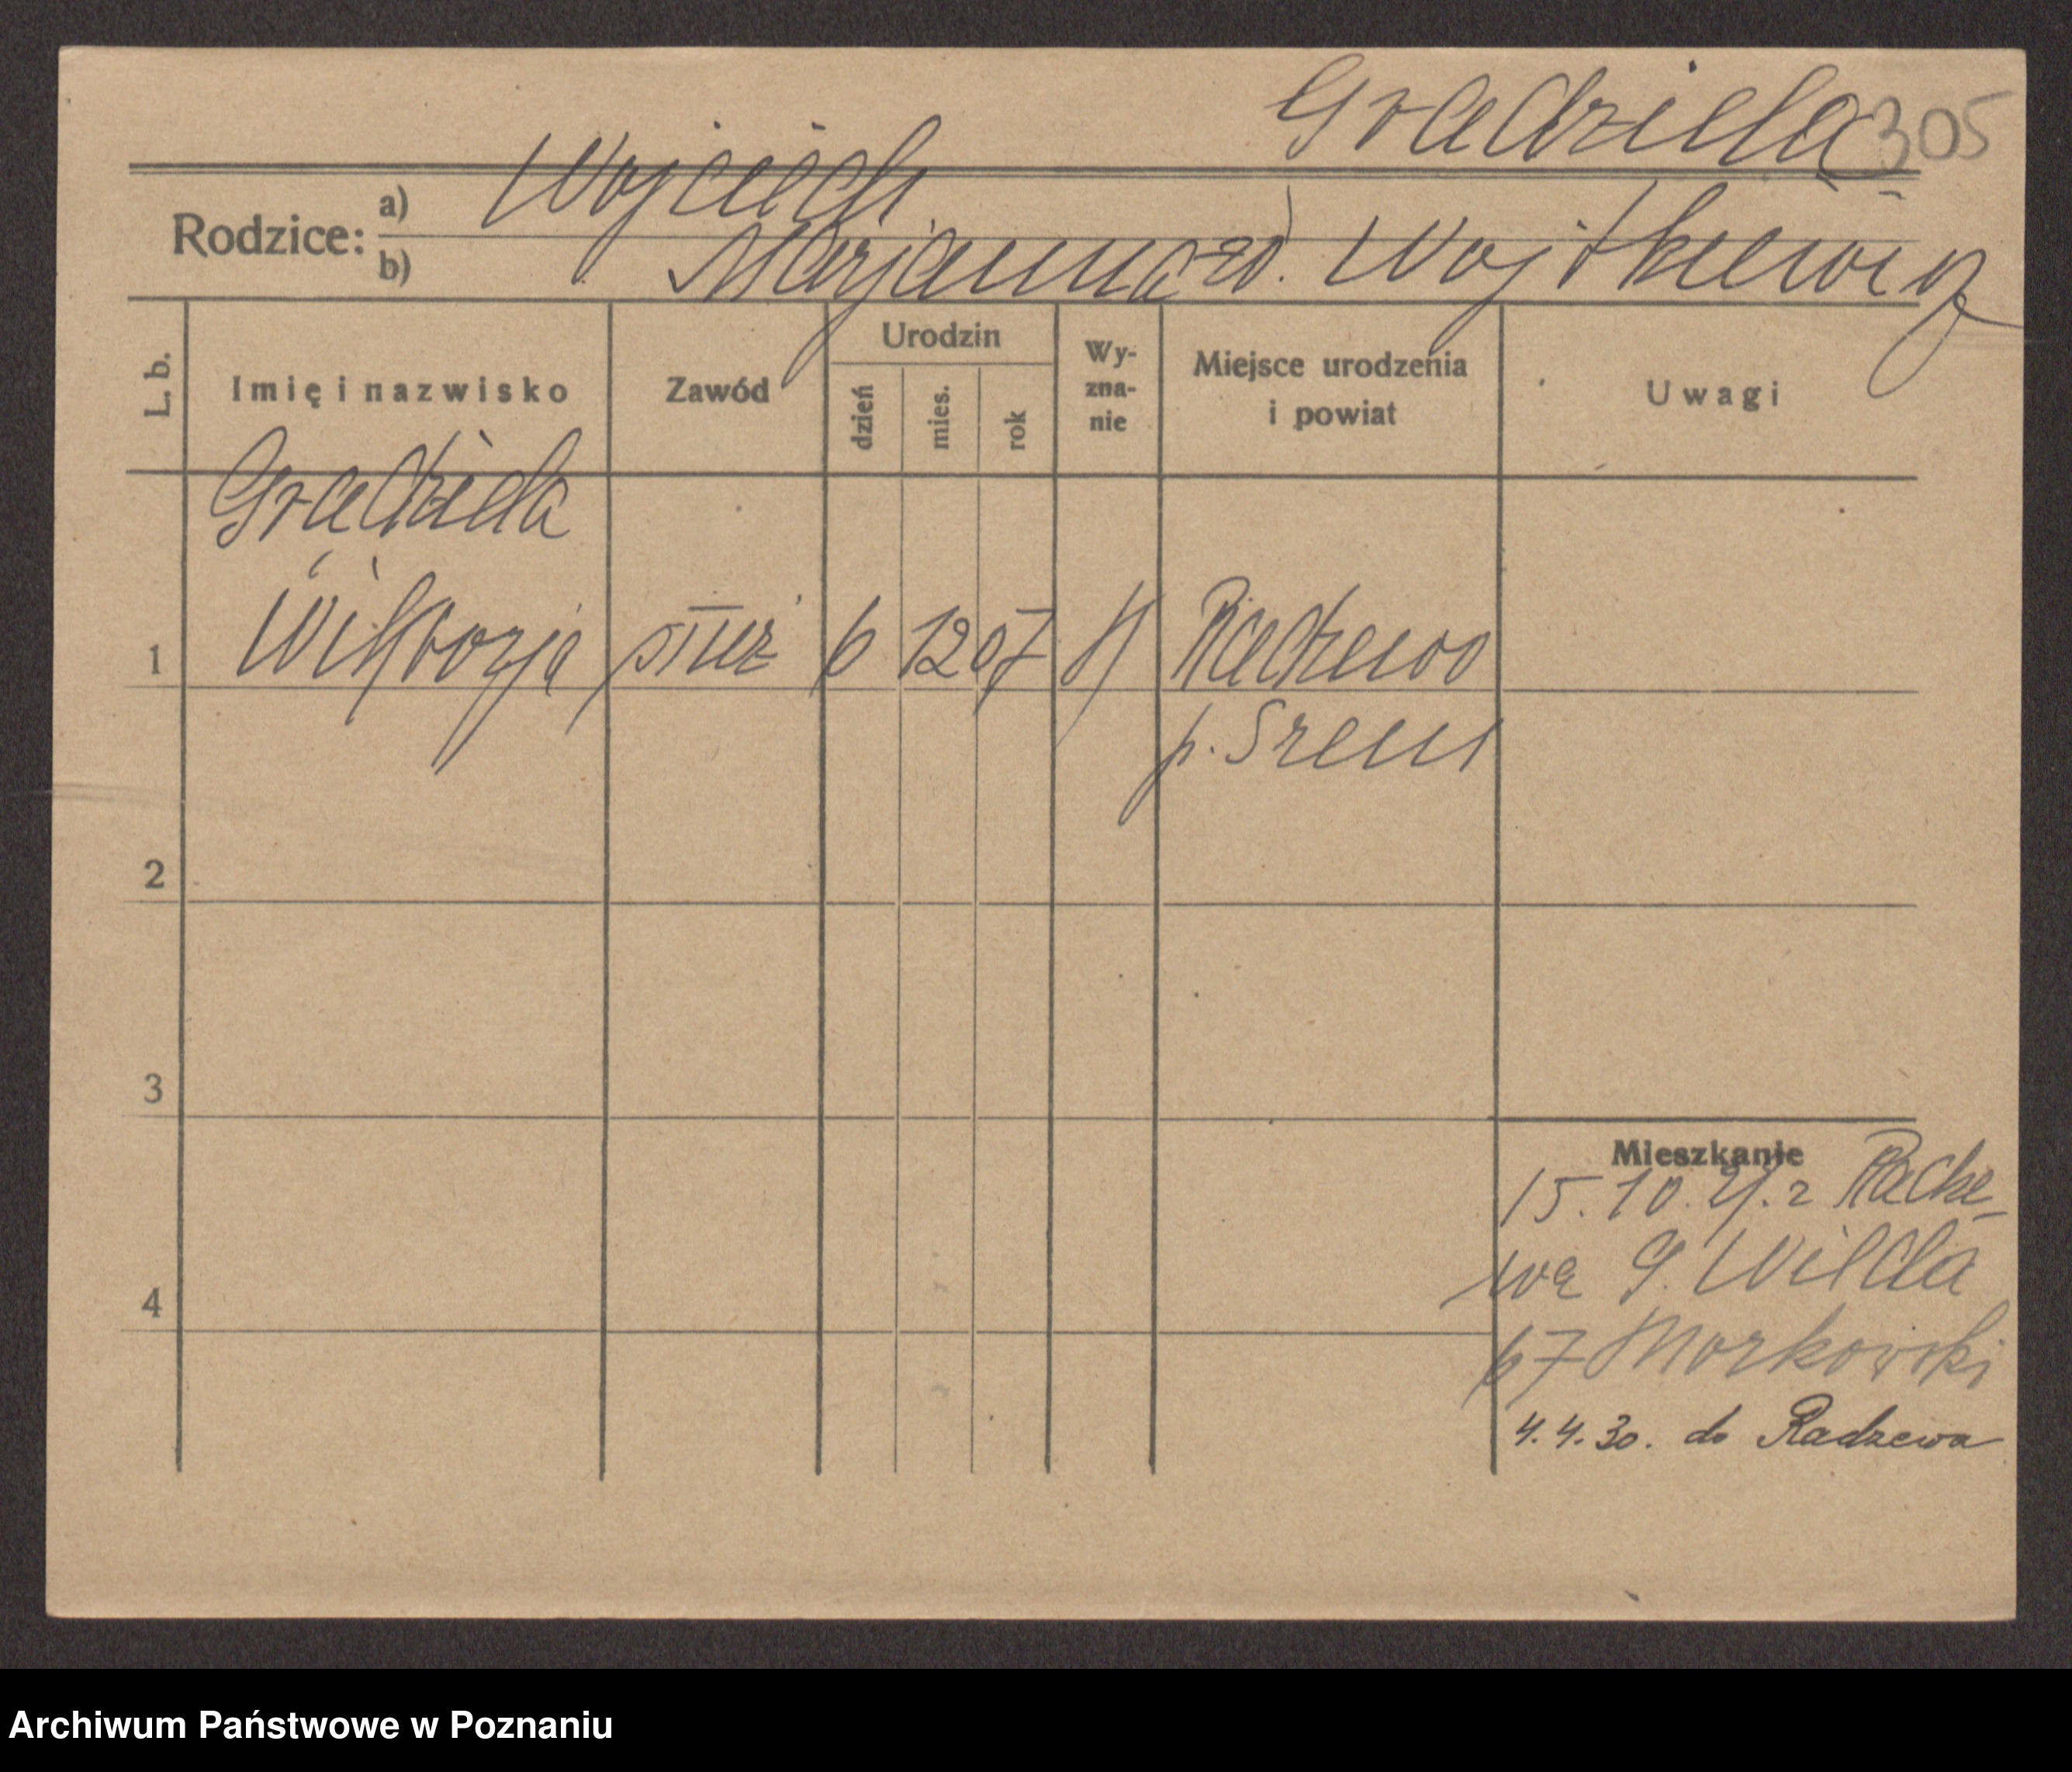 Gradziela 305
Wojciech
Rodzice: a)
b) Marjanna zd. Wojtkiewicz
L. b. Imię i nazwisko Zawód Urodzin dzień mies. rok Wyzna-nie Miejsce urodzenia i powiat Uwagi
Gradziela
1 Wiktorja służ 6 12 07 Radzewo
p. Srem
2
3
Mieszkanie
15. 10. z Radze-
wa G. Wilda
67 Morkowski
4
4. 4. 30. do Radzewa
Archiwum Państwowe w Poznaniu